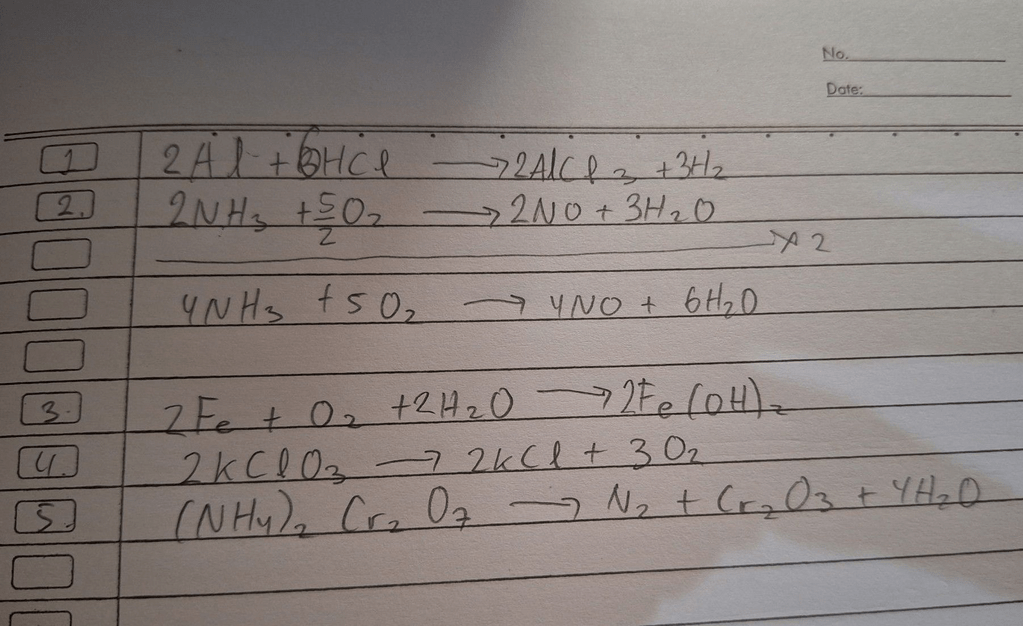 No.
Date:
1 2Al + 6HCl → 2AlCl3 + 3H2
2. 2NH3 + 5/2 O2 → 2NO + 3H2O
×2
4NH3 + 5O2 → 4NO + 6H2O
3. 2Fe + O2 + 2H2O → 2Fe(OH)2
4. 2KClO3 → 2KCl + 3O2
5. (NH4)2 Cr2 O7 → N2 + Cr2O3 + 4H2O